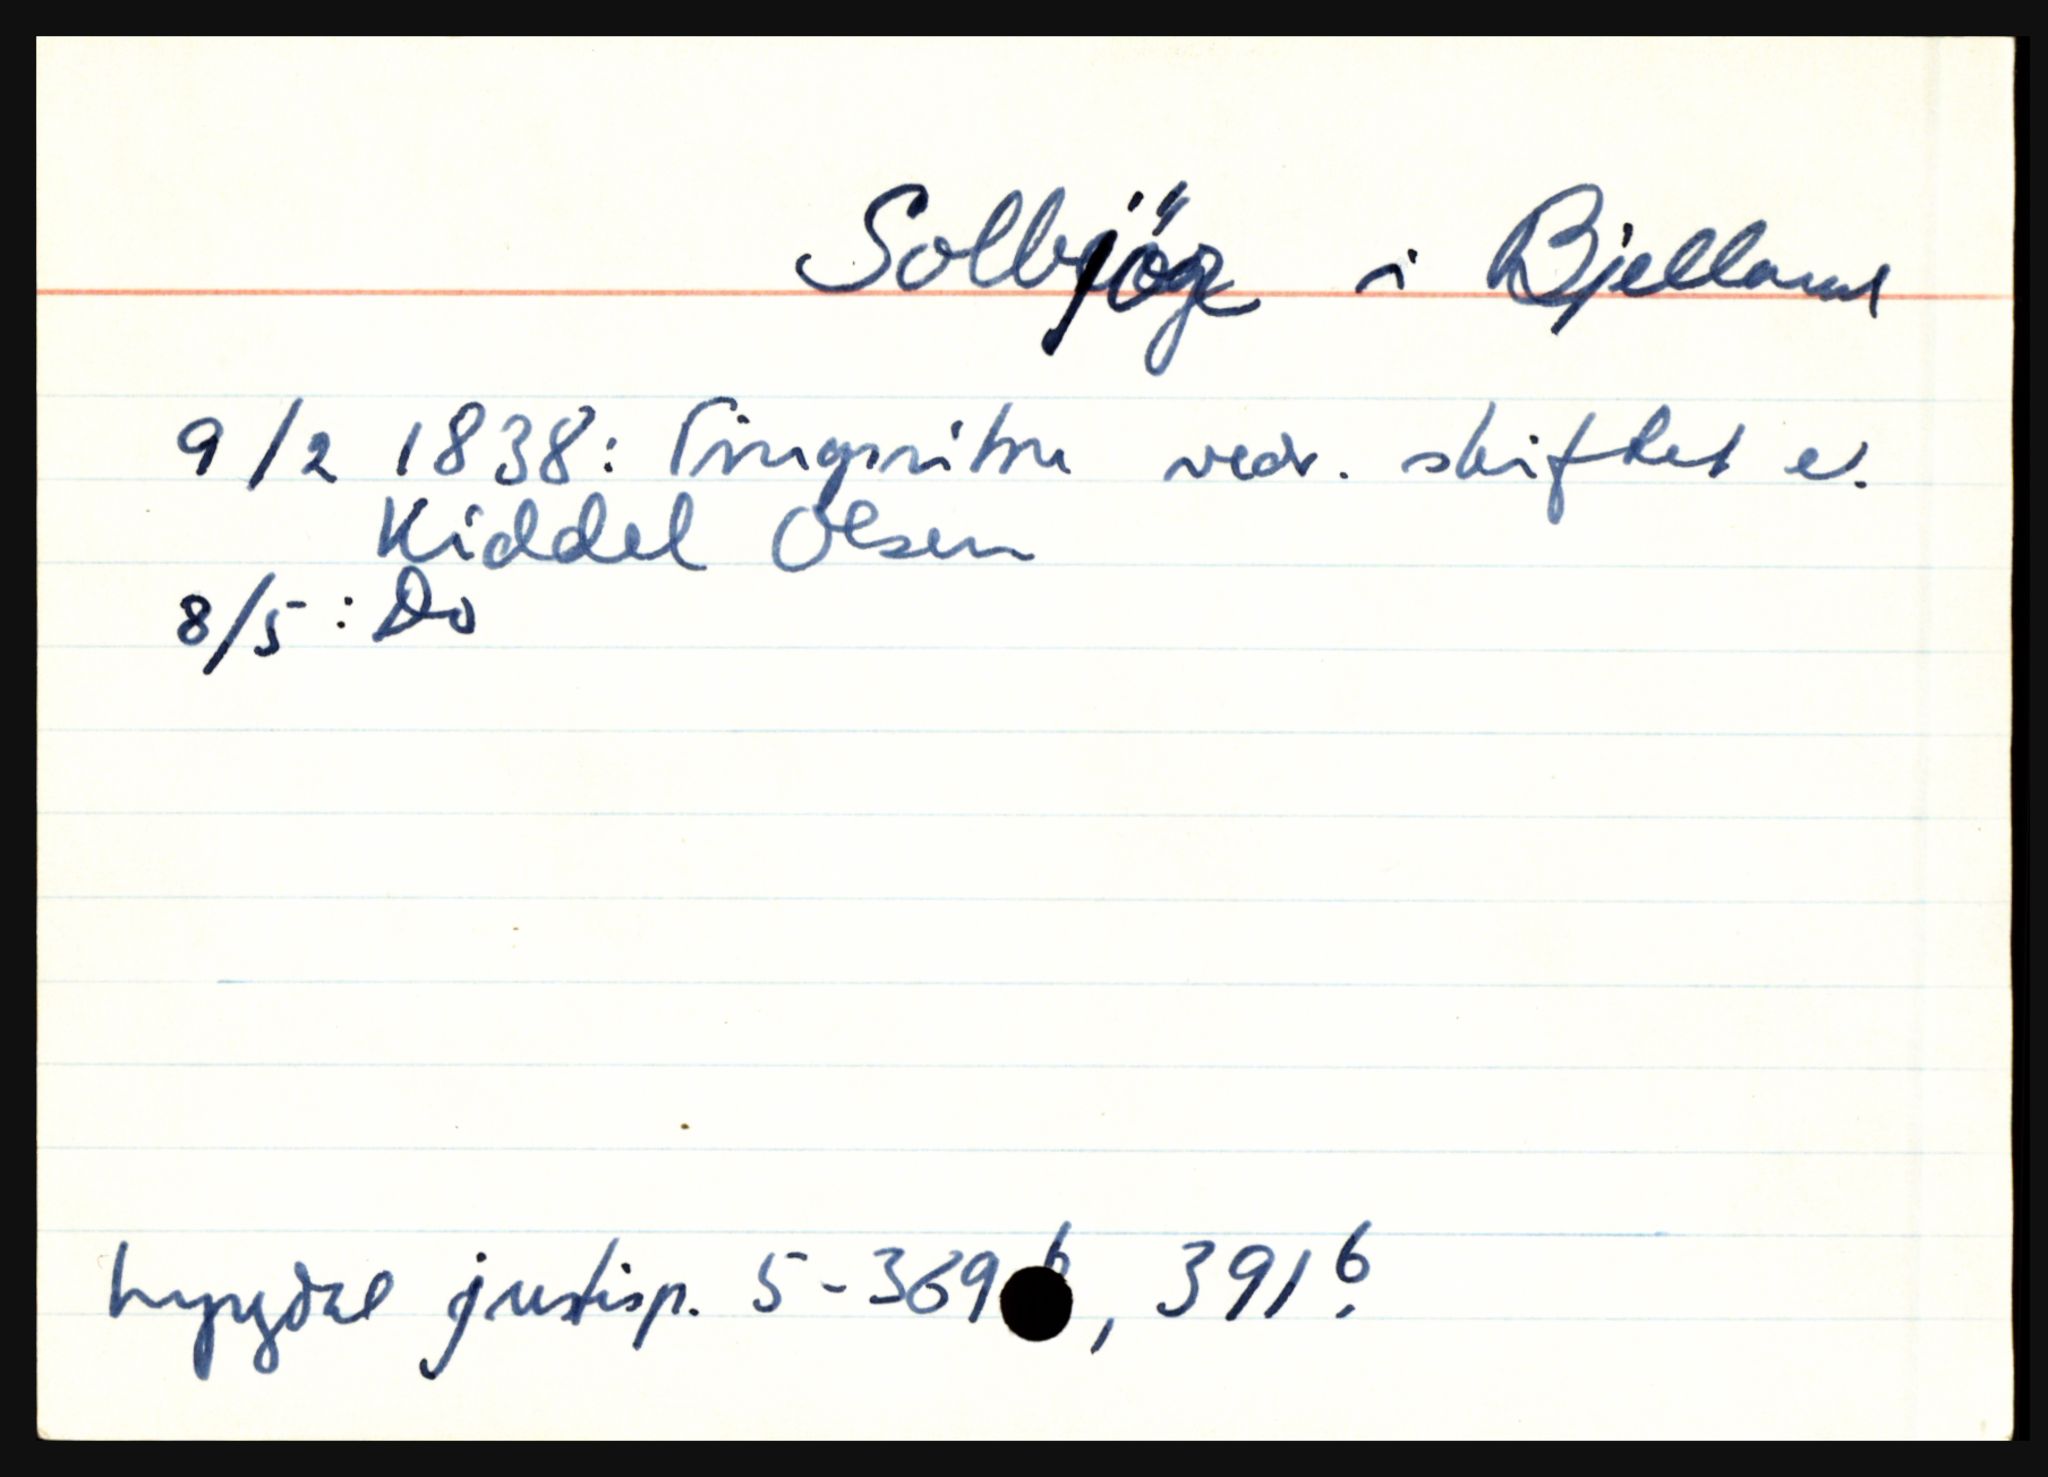 Solbjög i Bjelland
9/2 1838: Tingsvitne vedr. skiftet e.
Kiddel Olsen
8/5: Do
Lyngdal justisp. 5-369b, 391b.